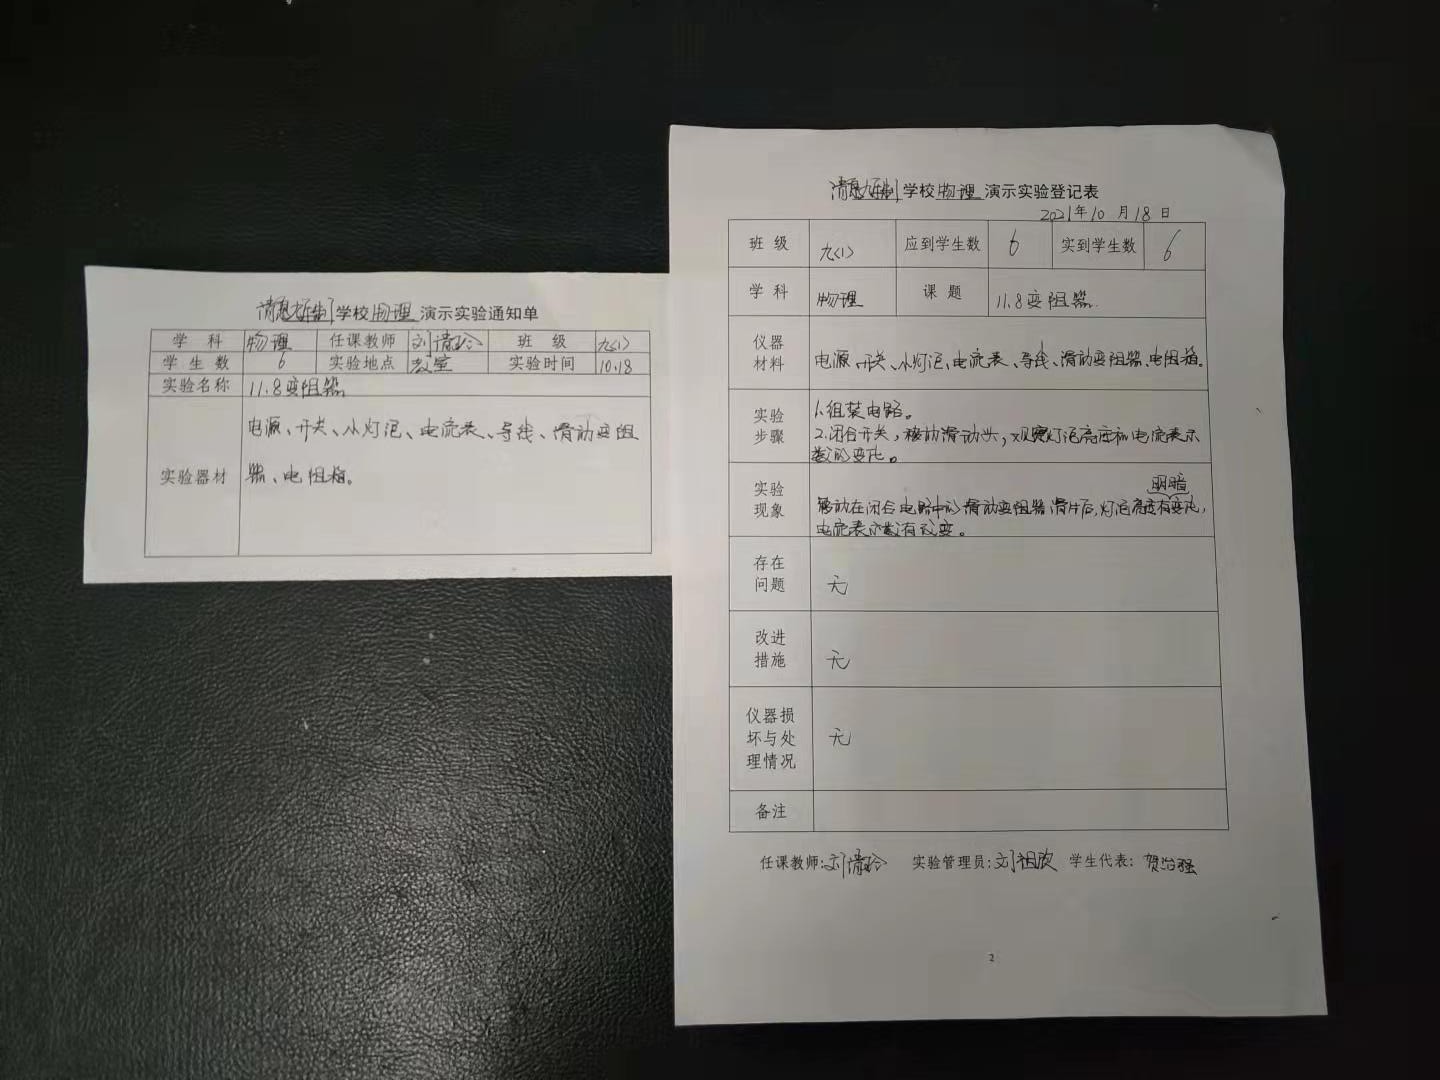 学校物理演示实验通知单
学科 物理 任课教师 刘清玲 班级 九(1)
学生数 6 实验地点 教室 实验时间 10.18
实验名称 11.8变阻器
实验器材 电源、开关、小灯泡、电流表、导线、滑动变阻
器、电阻箱。
学校物理演示实验登记表
2021年10月18日
班级 九(1) 应到学生数 6 实到学生数 6
学科 物理 课题 11.8变阻器
仪器
材料
电源、开关、小灯泡、电流表、导线、滑动变阻器、电阻箱。
实验
步骤
1.组装电路。
2.闭合开关,移动滑动头,观察灯泡亮度和电流表示
数的变化。
实验
现象
明暗
移动在闭合电路中的滑动变阻器滑片后,灯泡亮度有变化,
电流表示数有改变。
存在
问题
无
改进
措施
无
仪器损
坏与处
理情况
无
备注
任课教师:刘清玲 实验管理员:刘祖欣 学生代表:贺治强
2